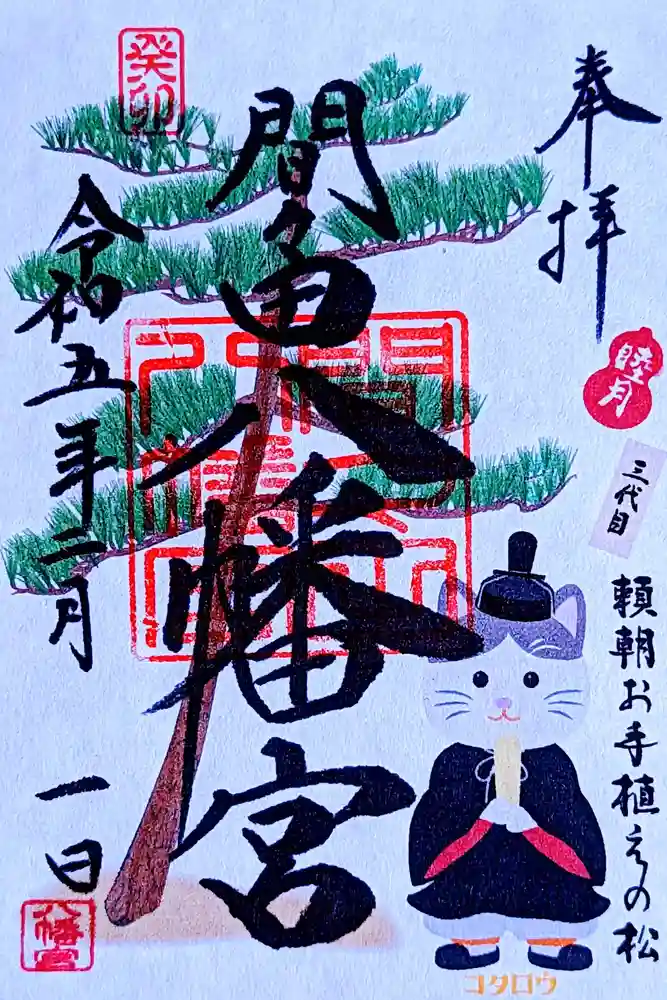 奉拝
睦月
三代目
頼朝お手植えの松
癸卯
間々田八幡宮
令和五年二月
一日
八幡宮
コタロウ